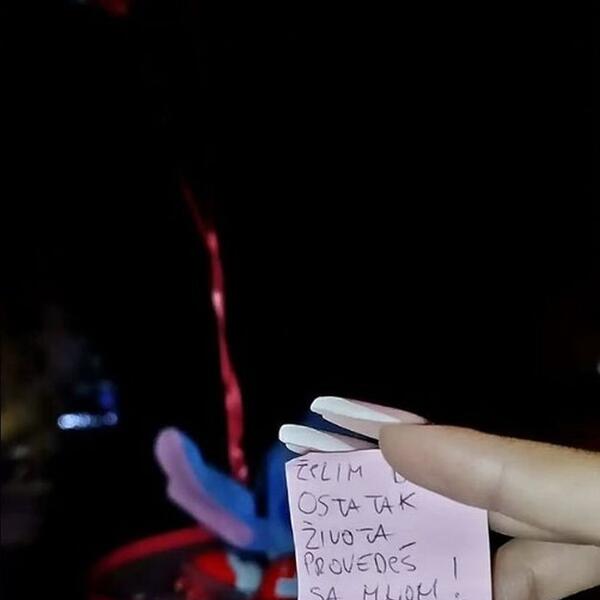 ŽELIM
OSTATAK
ŽIVOTA
PROVEDEŠ
SA MNOM !